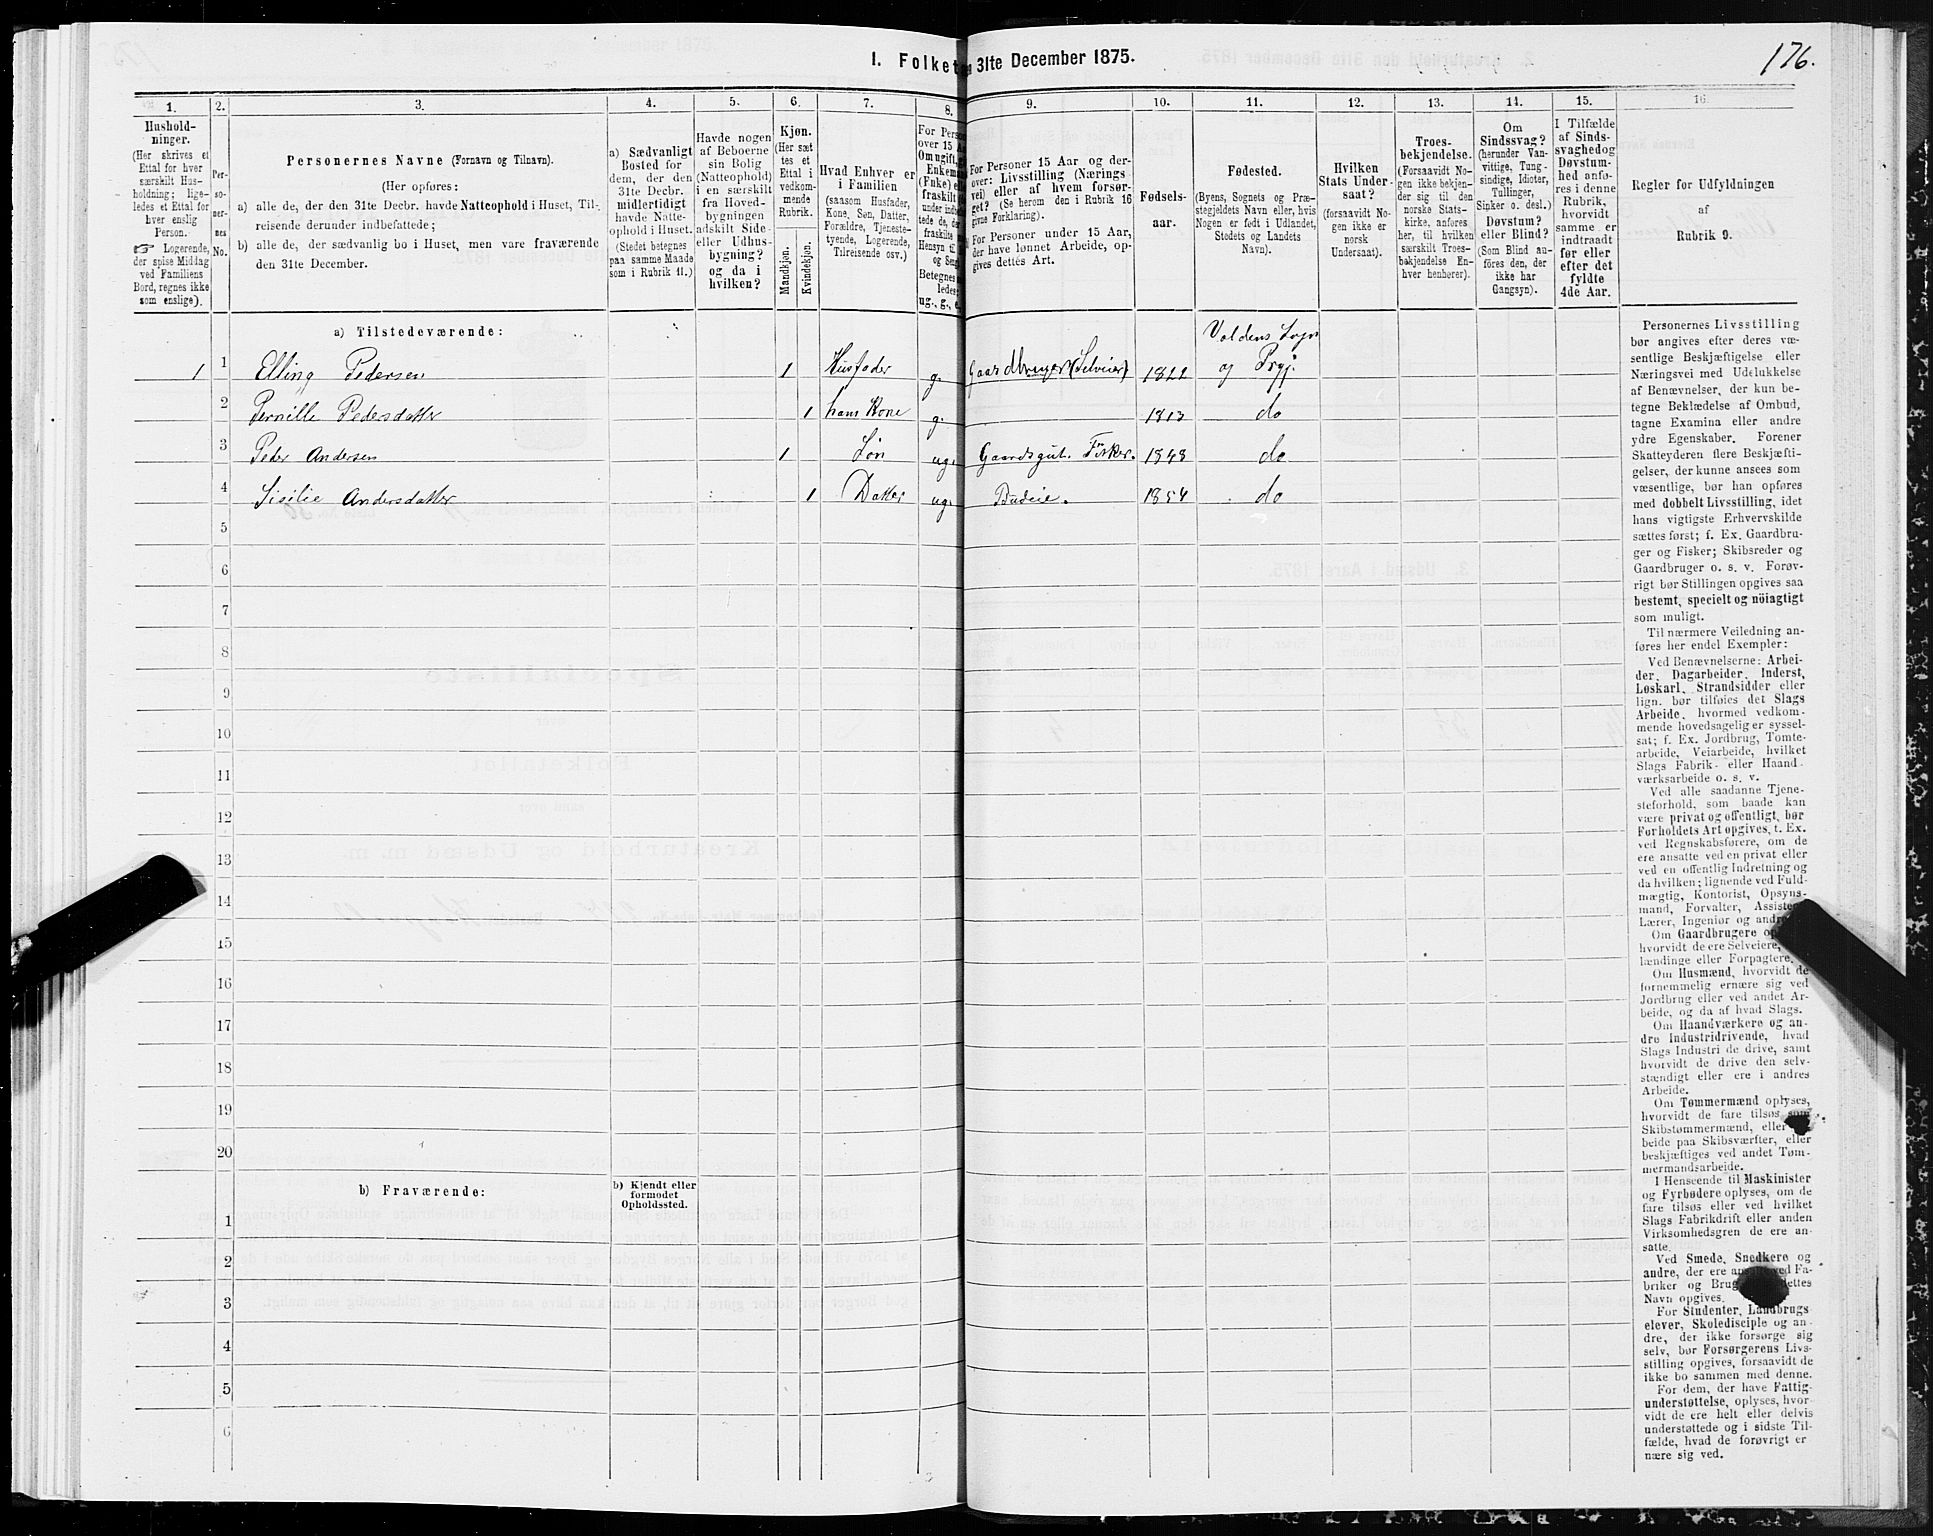 I. Folket
31te December 1875.
176.
1.
2.
3.
4.
5.
6.
7.
8.
9.
10.
11.
12.
13.
14.
15.
16.
Hushold-
ninger.
(Her skrives et
Ettal for hver
særskilt Hus-
holdning; lige-
ledes et Ettal for
hver enslig
Person.
☞ Logerende,
der spise Middag
ved Familiens
Bord, regnes ikke
som enslige).
Per-
so-
ner-
nes
No.
Personernes Navne (Fornavn og Tilnavn).
(Her opføres:
a) alle de, der den 31te Decbr. havde Natteophold i Huset, Til-
reisende derunder indbefattede;
b) alle de, der sædvanlig bo i Huset, men vare fraværende
den 31te December.
a) Sædvanligt
Bosted for
dem, der den
31te Decbr.
midlertidigt
havde Natte-
ophold i Huset.
(Stedet betegnes
paa samme Maade
som i Rubrik 11.)
Havde nogen
af Beboerne
sin Bolig
(Natteophold)
i en særskilt
fra Hoved-
bygningen
adskilt Side-
eller Udhus-
bygning?
og da i
hvilken?
Kjøn.
(Her sæt
tes et
Ettal i
vedkom-
mende
Rubrik.
Mandkjøn.
Kvindekjøn.
Hvad Enhver er
i Familien
(saasom Husfader,
Kone, Søn, Datter,
Forældre, Tjeneste-
tyende, Logerende,
Tilreisende osv.)
For Perso
over 15 A
Om ugift, g
Enkema
(Fuke) el
fraskilt
under indb
tede de, de
fraskilte
Hensyn ti
og Seng
Betegnes
ledes:
ug., g., e
For Personer 15 Aar og der-
over: Livsstilling (Nærings
vei) eller af hvem forsør-
get? (Se herom den i Rubrik 16
givne Forklaring).
For Personer under 15 Aar,
der have lønnet Arbeide, op-
gives dettes Art.
Fødsels-
aar.
Fødested.
(Byens, Sognets og Præ-
stegjeldets Navn eller, hvis
Nogen er født i Udlandet,
Stedets og Landets
Navn).
Hvilken
Stats Under-
saat?
(forsaavidt No-
gen ikke er
norsk
Undersaat).
Troes-
bekjendelse.
(Forsaavidt No-
gen ikke bekjen-
der sig til den
norske Stats-
kirke, anføres
her, til hvilken
særskilt Troes-
bekjendelse En-
hver henhører).
Om
Sindssvag?
(herunder Van-
vittige, Tung-
sindige, Idioter,
Tullinger,
Sinker o. desl.)
Døvstum?
eller Blind?
(Som Blind an-
føres den, der
ikke har
Gangsyn).
I Tilfælde
af Sinds-
svaghed og
Døvstum-
hed anfø-
res i denne
Rubrik,
hvorvidt
samme er
indtraadt
før eller
efter det
fyldte
4de Aar.
Regler for Udfyldningen
af
Rubrik 9.
a) Tilstedeværende:
Voldens Sogn
1 1 Elling Pedersen 1 Husfader g. Gaardbruger (Selveier) 1822 og Prgj.
2 Pernille Pedersdatter 1 hans Kone g. 1813 do
3 Peder Andersen 1 Søn ug. Gaardsgut. Fisker. 1848 do
4 Sisilie Andersdatter 1 Datter ug. Budeie. 1854 do
5
6
7
8
9
10
11
12
13
14
15
16
17
18
19
20
b) Fraværende:
b) Kjendt eller
formodet
Opholdssted.
1
2
3
4
5
6
Personernes Livsstilling
bør angives efter deres væ-
sentlige Beskjæftigelse eller
Næringsvei med Udelukkelse
af Benævnelser, der kun be-
tegne Beklædelse af Ombud,
tagne Examina eller andre
ydre Egenskaber. Forener
Skatteyderen flere Beskjæfti-
gelser, der kunne ansees som
væsentlige, bør han opføres
med dobbelt Livsstilling, idet
hans vigtigste Erhvervskilde
sættes først; f. Ex. Gaardbru-
ger og Fisker; Skibsreder og
Gaardbruger o. s. v. Forøv-
rigt bør Stillingen opgives saa
bestemt, specielt og nöiagtigt
som muligt.
Til nærmere Veiledning an-
føres her endel Exempler:
Ved Benævnelserne: Arbei-
der, Dagarbeider, Inderst,
Løskarl, Strandsidder eller
lign. bør tilføies det Slags
Arbeide, hvormed vedkom-
mende hovedsagelig er syssel-
sat; f. Ex. Jordbrug, Tomte-
arbeide, Veiarbeide, hvilket
Slags Fabrik- eller Haand-
værksarbeide o. s. v.
Ved alle saadanne Tjene-
steforhold, som baade kan
være privat og offentligt, bør
Forholdets Art opgives, t. Ex.
ved Regnskabsførere, om de
ere ansatte ved en privat eller
ved en offentlig Indretning og
da hvilken; lignende ved Fuld-
mægtig, Kontorist, Opsyns-
mand, Forvalter, Assisten
Lærer, Ingeniør og andre
Om Gaardbrugere op
hvorvidt de ere Selveiere,
lændinge eller Forpagtere.
Om Husmænd, hvorvidt de
fornemmelig ernære sig ved
Jordbrug eller ved andet Ar-
beide, og da af hvad Slags.
Om Haandværkere og an-
dre Industridrivende, hvad
Slags Industri de drive, samt
hvorvidt de drive den selv-
stændigt eller ere i andres
Arbeide.
Om Tømmermænd oplyses,
hvorvidt de fare tilsøs som
Skibstømmermænd, eller
beide paa Skibsværfter, eller
beskjæftiges ved andet Tøm-
mermandsarbeide.
I Henseende til Maskinister
og Fyrbødere oplyses, om de
fare tilsøs eller ved hvilket
Slags Fabrikdrift eller anden
Virksomhedsgren de ere an-
satte.
Ved Smede, Snedkere og
andre, der ere ansatte ved Fa-
briker og Brug dettes
Navn opgives.
For Studenter, Landbrugs
elever, Skoledisciple og an-
dre, der ikke forsørge sig
selv, bør Forsørgerens Livs-
stilling opgives, forsaavidt de
ikke bo sammen med denne.
For dem, der have Fattig-
understøttelse, oplyses, hvor-
vidt de ere helt eller delvis
understøttede og i sidste Til-
fælde, hvad de forøvrigt er
nære sig ved.